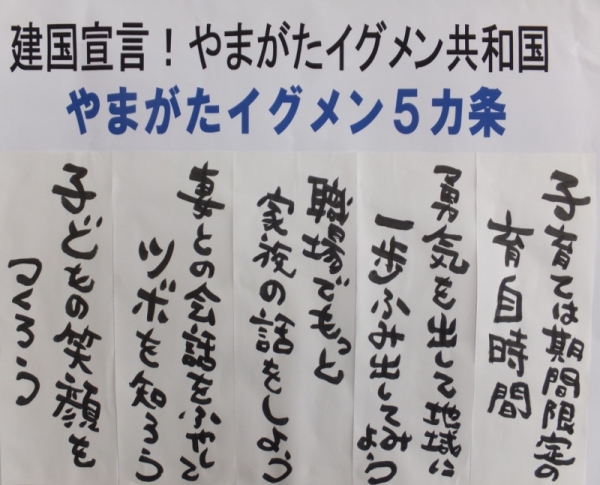 建国宣言！やまがたイグメン共和国
やまがたイグメン５カ条
子育ては期間限定の
育自時間
勇気を出して地域に
一歩ふみ出してみよう
職場でもっと
家族の話をしよう
妻との会話をふやして
ツボを知ろう
子どもの笑顔を
つくろう